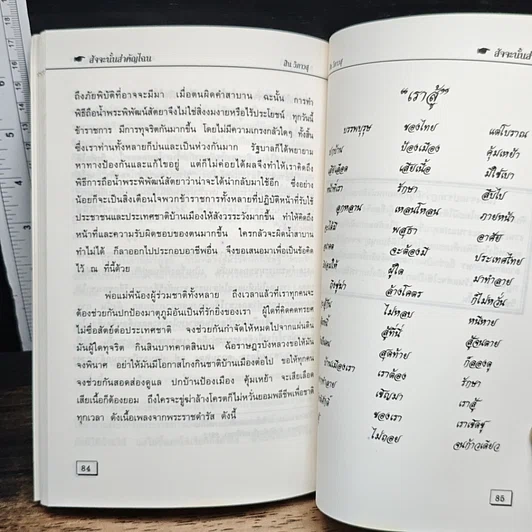 สัจจะนั้นสำคัญไฉน
สิน วิภาวสุ
ถึงภัยพิบัติที่อาจจะมีมา เมื่อตนผิดคำสาบาน ฉะนั้น การทำ
พิธีถือน้ำพระพิพัฒน์สัตยาจึงไม่ใช่สิ่งงมงายหรือไร้ประโยชน์ ทุกวันนี้
ข้าราชการ มีการทุจริตกันมากขึ้น โดยไม่มีความเกรงกลัวใดๆ ทั้งสิ้น
ซึ่งเราท่านทั้งหลายก็บ่นและเป็นห่วงกันมาก รัฐบาลก็ได้พยายาม
หาทางป้องกันและแก้ไขอยู่ แต่ก็ไม่ค่อยได้ผลจึงทำให้เราคิดถึง
พิธีการถือน้ำพระพิพัฒน์สัตยาว่าน่าจะได้นำกลับมาใช้อีก ซึ่งอย่าง
น้อยก็จะเป็นสิ่งเตือนใจพวกข้าราชการทั้งหลายที่ปฏิบัติหน้าที่รับใช้
ประชาชนและประเทศชาติบ้านเมืองให้สังวรระวังมากขึ้น ทำให้คิดถึง
หน้าที่และความรับผิดชอบของตนมากขึ้น ใครกลัวจะผิดน้ำสาบาน
ทำไม่ได้ ก็ลาออกไปประกอบอาชีพอื่น จึงขอเสนอมาเพื่อเป็นข้อคิด
ไว้ ณ ที่นี้ด้วย
พ่อแม่พี่น้องผู้ร่วมชาติทั้งหลาย ถึงเวลาแล้วที่เราทุกคนจะ
ต้องช่วยกันปกป้องมาตุภูมิอันเป็นที่รักยิ่งของเรา ผู้ใดที่คิดคดทรยศ
ไม่ซื่อสัตย์ต่อประเทศชาติ จงช่วยกันกำจัดให้หมดไปจากแผ่นดิน
มันผู้ใดทุจริต กินสินบาทคาดสินบน ฉ้อราษฎร์บังหลวงขอให้มัน
จงพินาศ อย่าให้มันมีโอกาสโกงกินชาติบ้านเมืองต่อไป ขอให้ทุกคน
จงช่วยกันสอดส่องดูแล ปกบ้านป้องเมือง คุ้มเหย้า จะเสียเลือด
เสียเนื้อก็ต้องยอม ถึงใครจะขู่ฆ่าล้างโคตรก็ไม่หวั่นยอมพลีชีพเพื่อชาติ
ทุกเวลา ดังเนื้อเพลงจากพระราชดำรัส ดังนี้
84
สัจจะนั้นสำ
วิภาวสุ
"เราสู้"
บรรพบุรุษ ของไทย แต่โบราณ
ป้องเมือง คุ้มเหย้า
เสียเนื้อ มิใช่เบา
รักษา สืบไป
ลูกหลาน เหลนโหลน ภายหน้า
พสุธา อาศัย
จะต้องมี ประเทศไทย
ผู้ใด มาทำลาย
ล้างโคตร ก็ไม่หวั่น
ไม่หลบ หนีหาย
สู้ที่นี่ สู้จนตาย
สุดท้าย ก็ลองดู
บ้านเมืองเรา เราต้อง รักษา
เชิญมา เราสู้
ของเรา เราเชิดชู
ไม่ถอย จนก้าวเดียว
85